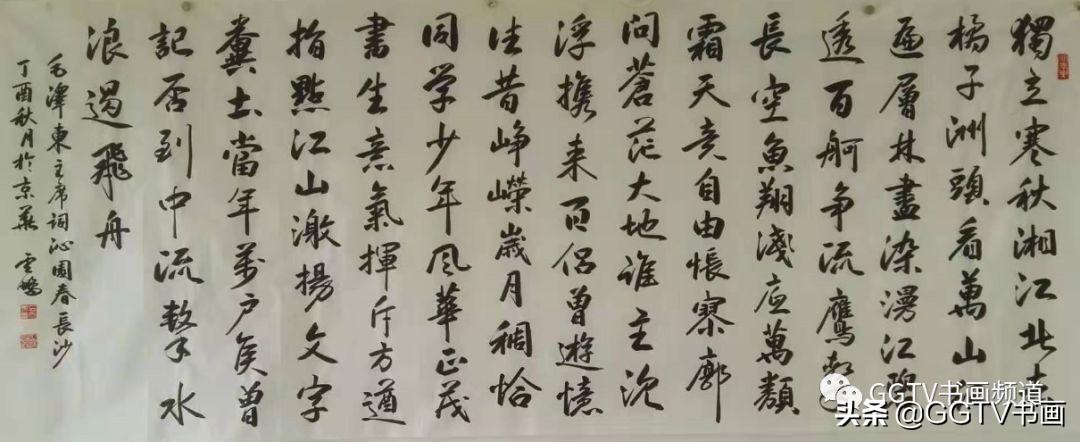 獨立寒秋湘江北去
橘子洲頭看萬山
遍層林盡染漫江碧
透百舸争流鷹擊
長空魚翔淺底萬類
霜天竞自由悵寥廓
問蒼茫大地誰主沉
浮携来百侣曾遊憶
往昔峥嶸歲月稠恰
同学少年风華正茂
書生意氣揮斥方遒
指點江山激揚文字
糞土當年萬户侯曾
記否到中流擊水
浪遏飛舟
毛澤東主席詞沁園春長沙
丁酉秋月於京華 雲鵬
GGTV书画频道
头条 @GGTV书画